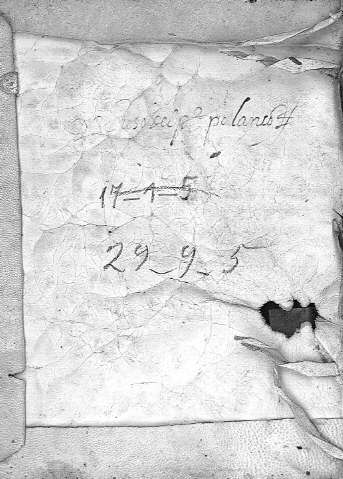 polanco
17-1-5
29-9-5